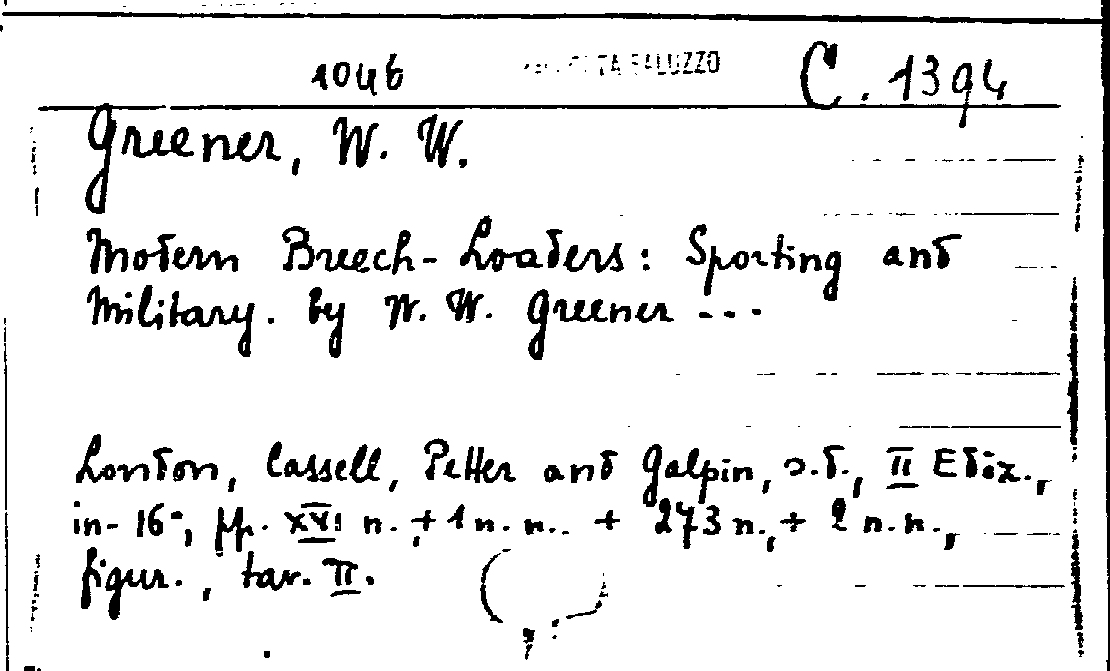 1046 RACCOLTA SALUZZO C. 1394
Greener, W. W.
Modern Breech-Loaders: Sporting and
Military. by W. W. Greener ---
London, Cassell, Petter and Galpin, s.d., II Ediz.,
in-16°, pp. XVI n.,+1 n.n.. + 273 n.,+ 2 n.n.,
figur., tav. II.